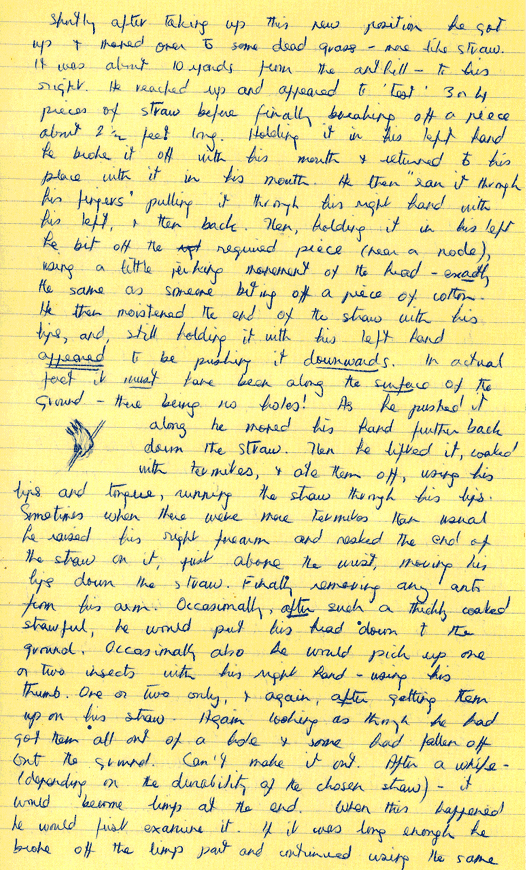 Shortly after taking up this new position he got
up & moved over to some dead grass - more like straw.
It was about 10 yards from the ant hill - to his
right. He reached up and appeared to 'test' 3 or 4
pieces of straw before finally breaking off a piece
about 2½ feet long. Holding it in his left hand
he broke it off with his mouth & returned to his
place with it in his mouth. He then "ran it through
his fingers" pulling it through his right hand with
his left, & then back. Then, holding it in his left
he bit off the required piece (near a node),
using a little jerking movement of the head - exactly
the same as someone biting off a piece of cotton.
He then moistened the end of the straw with his
lips, and, still holding it with his left hand
appeared to be pushing it downwards. In actual
fact it must have been along the surface of the
ground - there being no holes! As he pushed it
along he moved his hand further back
down the straw. Then he lifted it, coated
with termites, & ate them off, using his
lips and tongue, running the straw through his lips.
Sometimes when there were more termites than usual
he raised his right forearm and rested the end of
the straw on it, just above the wrist, moving his
lips down the straw. Finally removing any ants
from his arm. Occasionally, after such a thickly coated
strawful, he would put his head down to the
ground. Occasionally also he would pick up one
or two insects with his right hand - using his
thumb. One or two only, & again, after getting them
up on his straw. Again looking as though he had
got them all out of a hole & some had fallen off
onto the ground. Can't make it out. After a while -
(depending on the durability of the chosen straw) - it
would become limp at the end. When this happened
he would first examine it. If it was long enough he
broke off the limp part and continued using the same